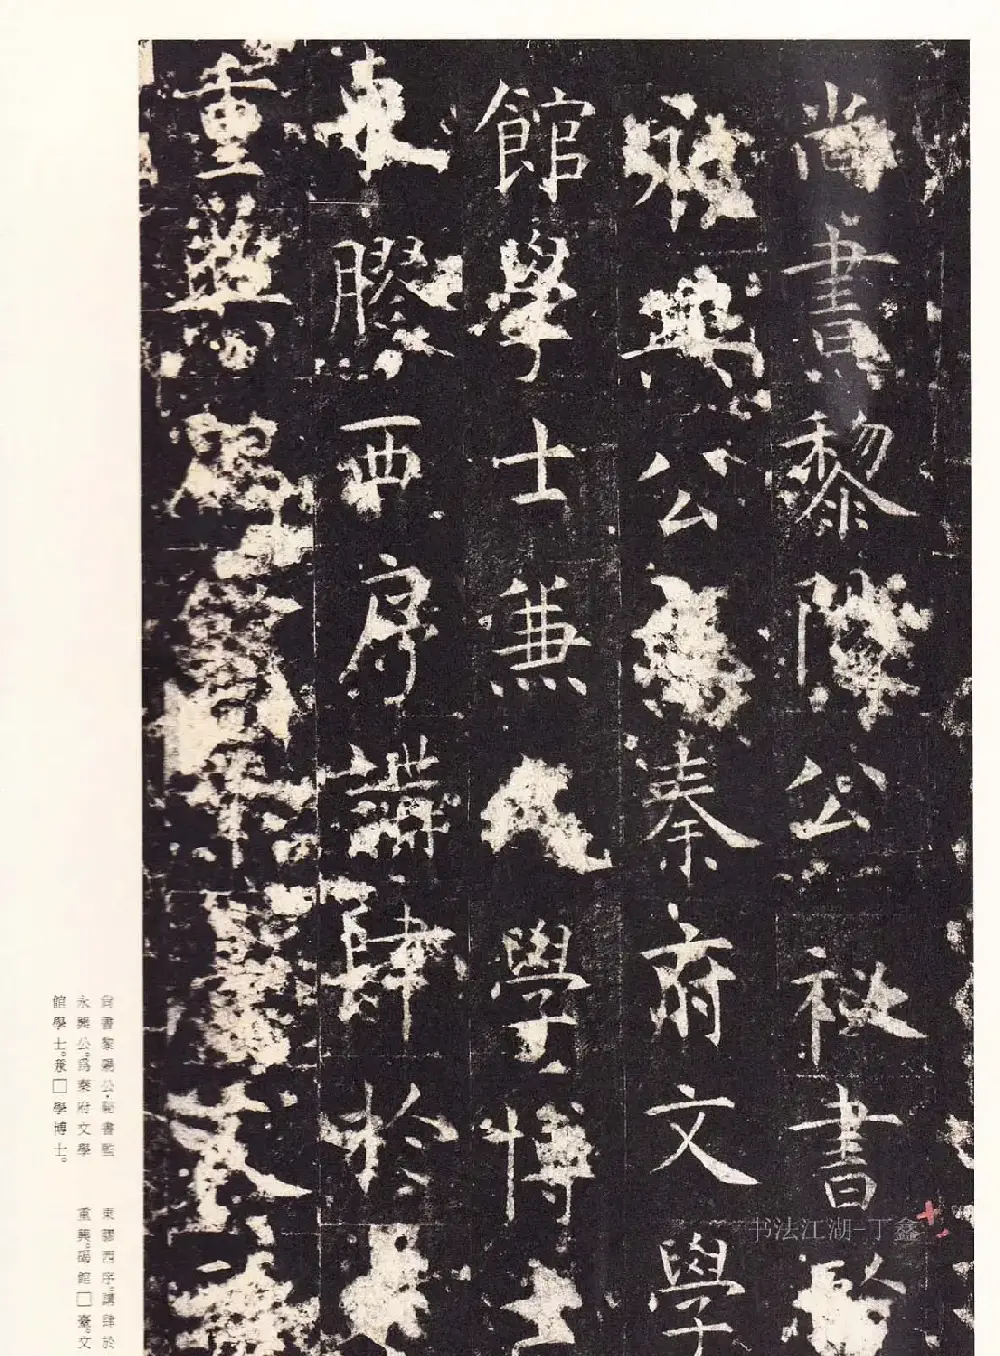 尚書黎陽公祕書監
永興公爲秦府文學
館學士兼□學博士
東膠西序講肆於
重興碣館□臺文
尚書黎陽公·祕書監
永興公。爲秦府文學
館學士。兼□學博士。
東膠西序。講肆於
重興。碣館□臺。文
书法江湖-丁鑫